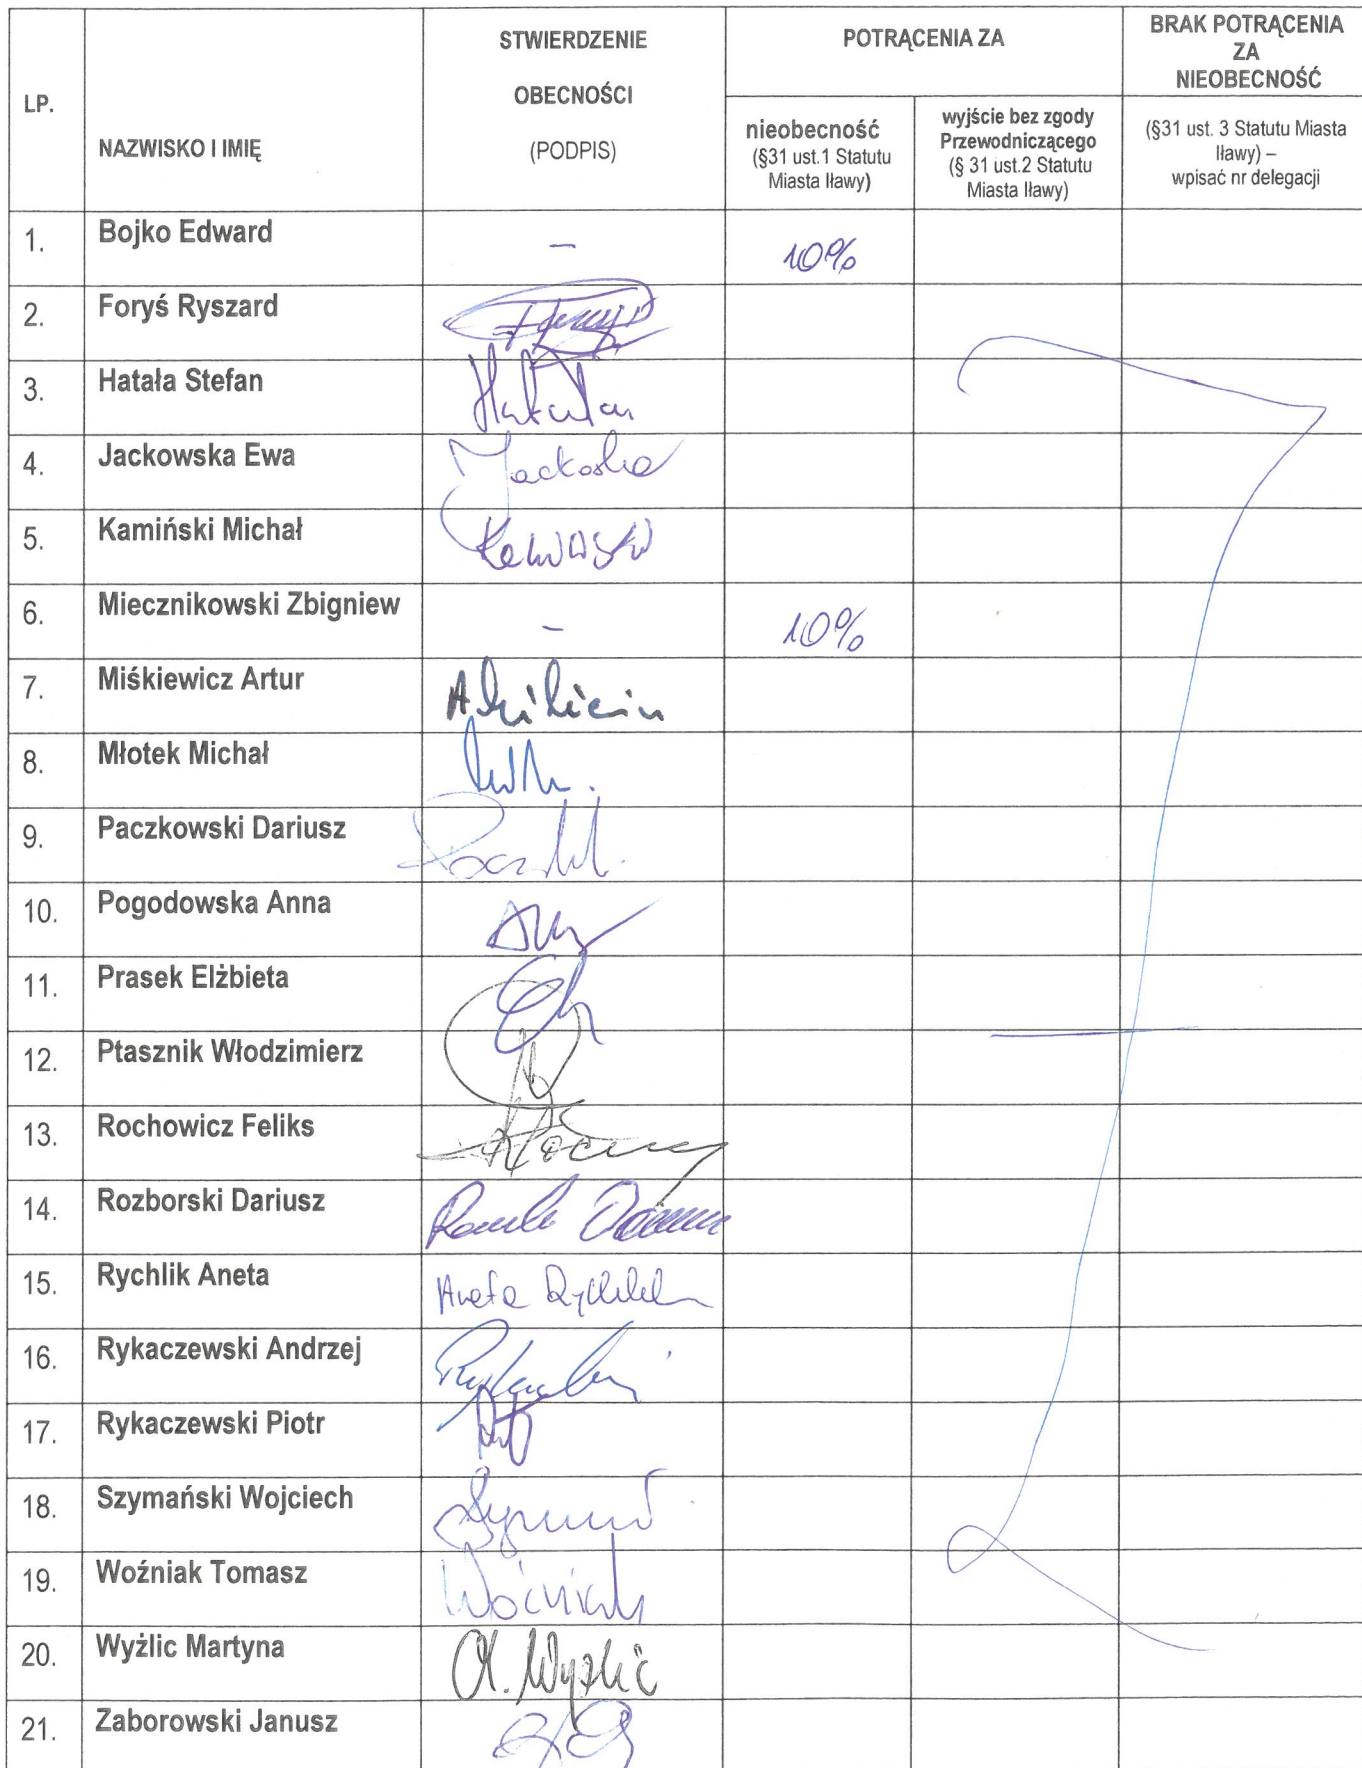 LP.
NAZWISKO I IMIĘ
STWIERDZENIE
OBECNOŚCI
(PODPIS)
POTRĄCENIA ZA
nieobecność
(§31 ust.1 Statutu
Miasta Iławy)
wyjście bez zgody
Przewodniczącego
(§ 31 ust.2 Statutu
Miasta Iławy)
BRAK POTRĄCENIA
ZA
NIEOBECNOŚĆ
(§31 ust. 3 Statutu Miasta
Iławy) –
wpisać nr delegacji
1. Bojko Edward – 10%
2. Foryś Ryszard
3. Hatała Stefan
4. Jackowska Ewa
5. Kamiński Michał
6. Miecznikowski Zbigniew – 10%
7. Miśkiewicz Artur
8. Młotek Michał
9. Paczkowski Dariusz
10. Pogodowska Anna
11. Prasek Elżbieta
12. Ptasznik Włodzimierz
13. Rochowicz Feliks
14. Rozborski Dariusz
15. Rychlik Aneta Aneta Rychlik
16. Rykaczewski Andrzej
17. Rykaczewski Piotr
18. Szymański Wojciech
19. Woźniak Tomasz Woźniak
20. Wyżlic Martyna M. Wyżlic
21. Zaborowski Janusz